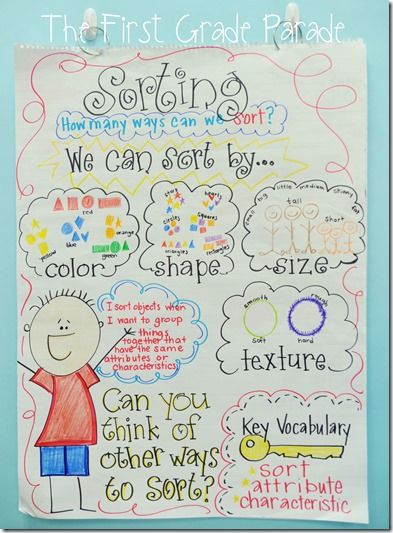 The First Grade Parade
Sorting
How many ways can we sort?
We can sort by...
red
yellow
blue
orange
green
color
stars
hearts
circles
squares
triangles
rectangles
shape
small
big
little
medium
skinny
fat
tall
short
size
I sort objects when
I want to group
things
together that
have the same
attributes or
characteristics)
smooth
rough
soft
hard
texture
Can you
think of
other ways
to sort?
Key Vocabulary
sort
attribute
characteristic